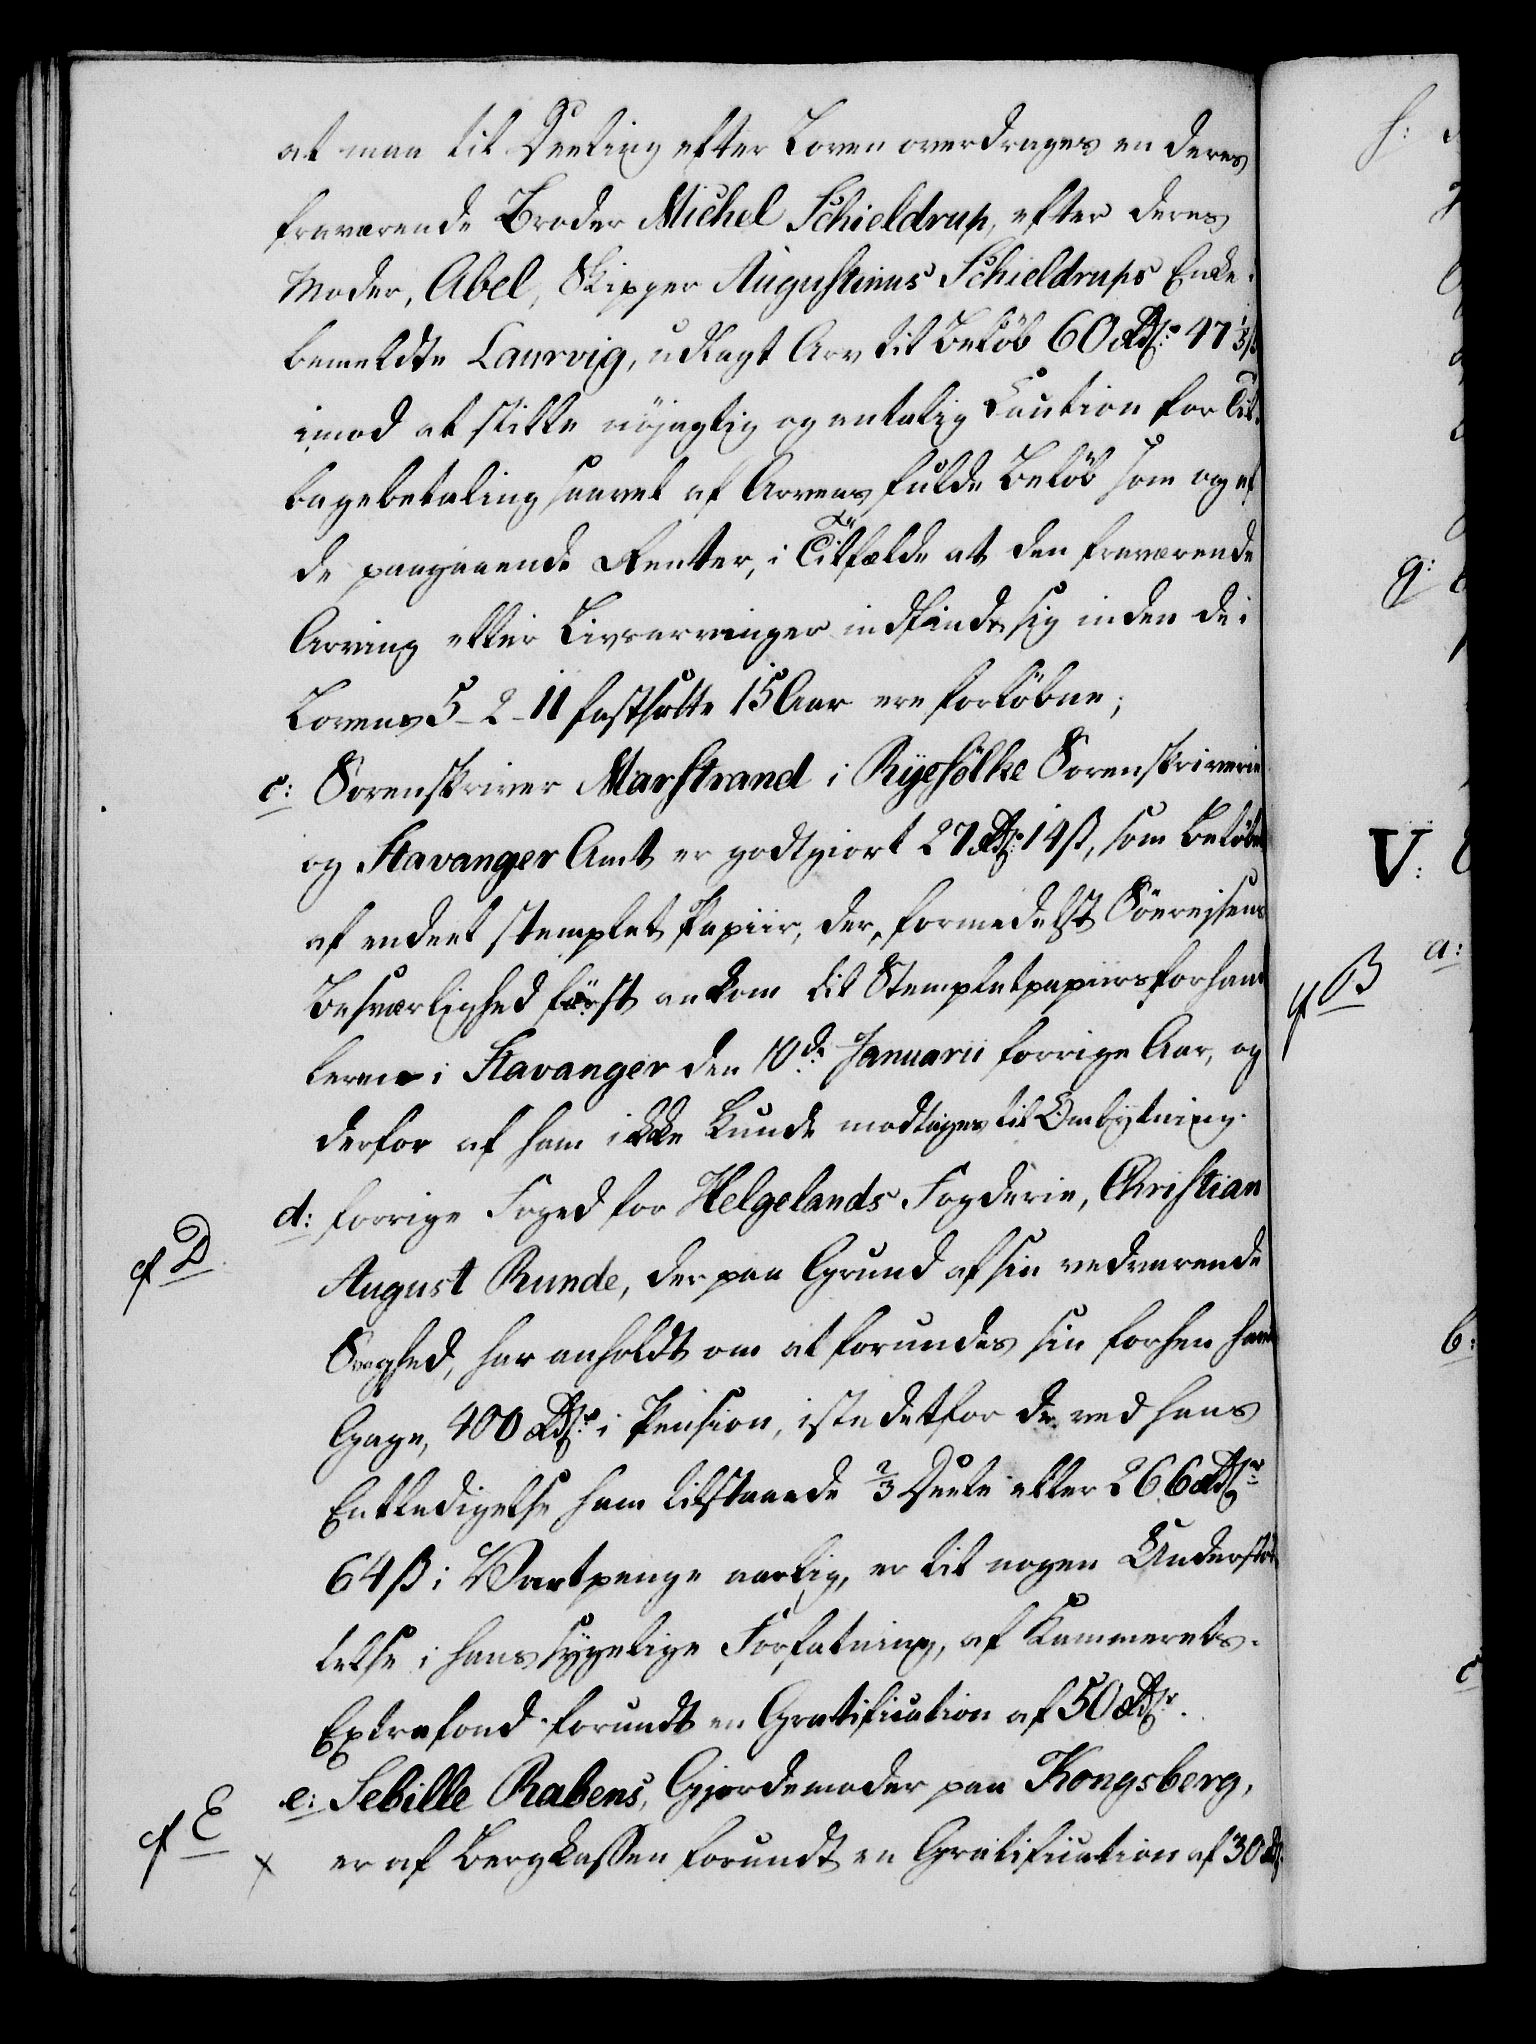 at maa til Deeling efter Loven overdrages en deres
fraværende Broder Michel Schieldrup, efter deres
Moder, Abel, Skipper Augustinus Schieldrups Enke i
bemeldte Laurvig, udlagt Arv til Beløb 60 Rdr. 47 1/3 ß
imod at stille nöjagtig og antalig Caution for Til-
bagebetaling saavel af Arvens fulde Belöb som og af
de paagaaende Renter, i Tilfælde at den fraværende
Arving eller Livsarvinger indfinde sig inden de i
Lovens 5-2-11 fastsatte 15 Aar ere forløbne;
c: Sorenskriver Marstrand i Ryefölke Sorenskriverie
og Stavanger Amt er godtgiort 27 Rdr. 14 ß, som Belöbet
af endeel stemplet Papiir, der, formedelst Söereisens
Besværlighed först ankom til Stempletpapiirsforhand-
leren i Stavanger den 10de Januarii forrige Aar, og
derfor af ham ikke kunde modtages til Ombytning.
cf D.
d: forrige Foged for Helgelands Fogderie, Christian
August Runde, der paa Grund af sin vedvarende
Svaghed, har anholdt om at forundes sin forhen havte
Gage, 400 Rdr. i Pension, istedetfor de ved hans
Entledigelse ham tilstaaede 2/3 Deele eller 266 Rdr.
64 ß i Vartpenge aarlig, er til nogen Understöt-
telse i hans sygelige Forfatning, af Kammerets
Extrafond forundt en Gratification af 50 Rdr.
cf E
e: Sebille Rabens, Gjordemoder paa Kongsberg,
x er af Bergkassen forundt en Gratification af 30 Rdr.
h:
g:
V:
cf B
a:
b:
c